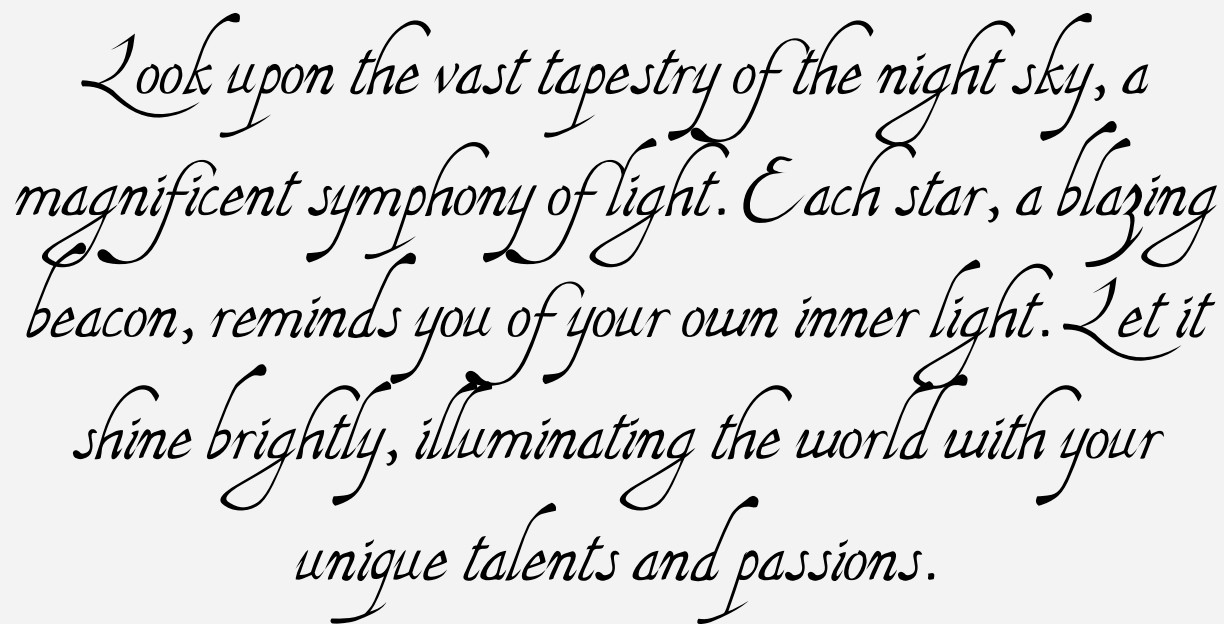 Look upon the vast tapestry of the night sky, a
magnificent symphony of light. Each star, a blazing
beacon, reminds you of your own inner light. Let it
shine brightly, illuminating the world with your
unique talents and passions.